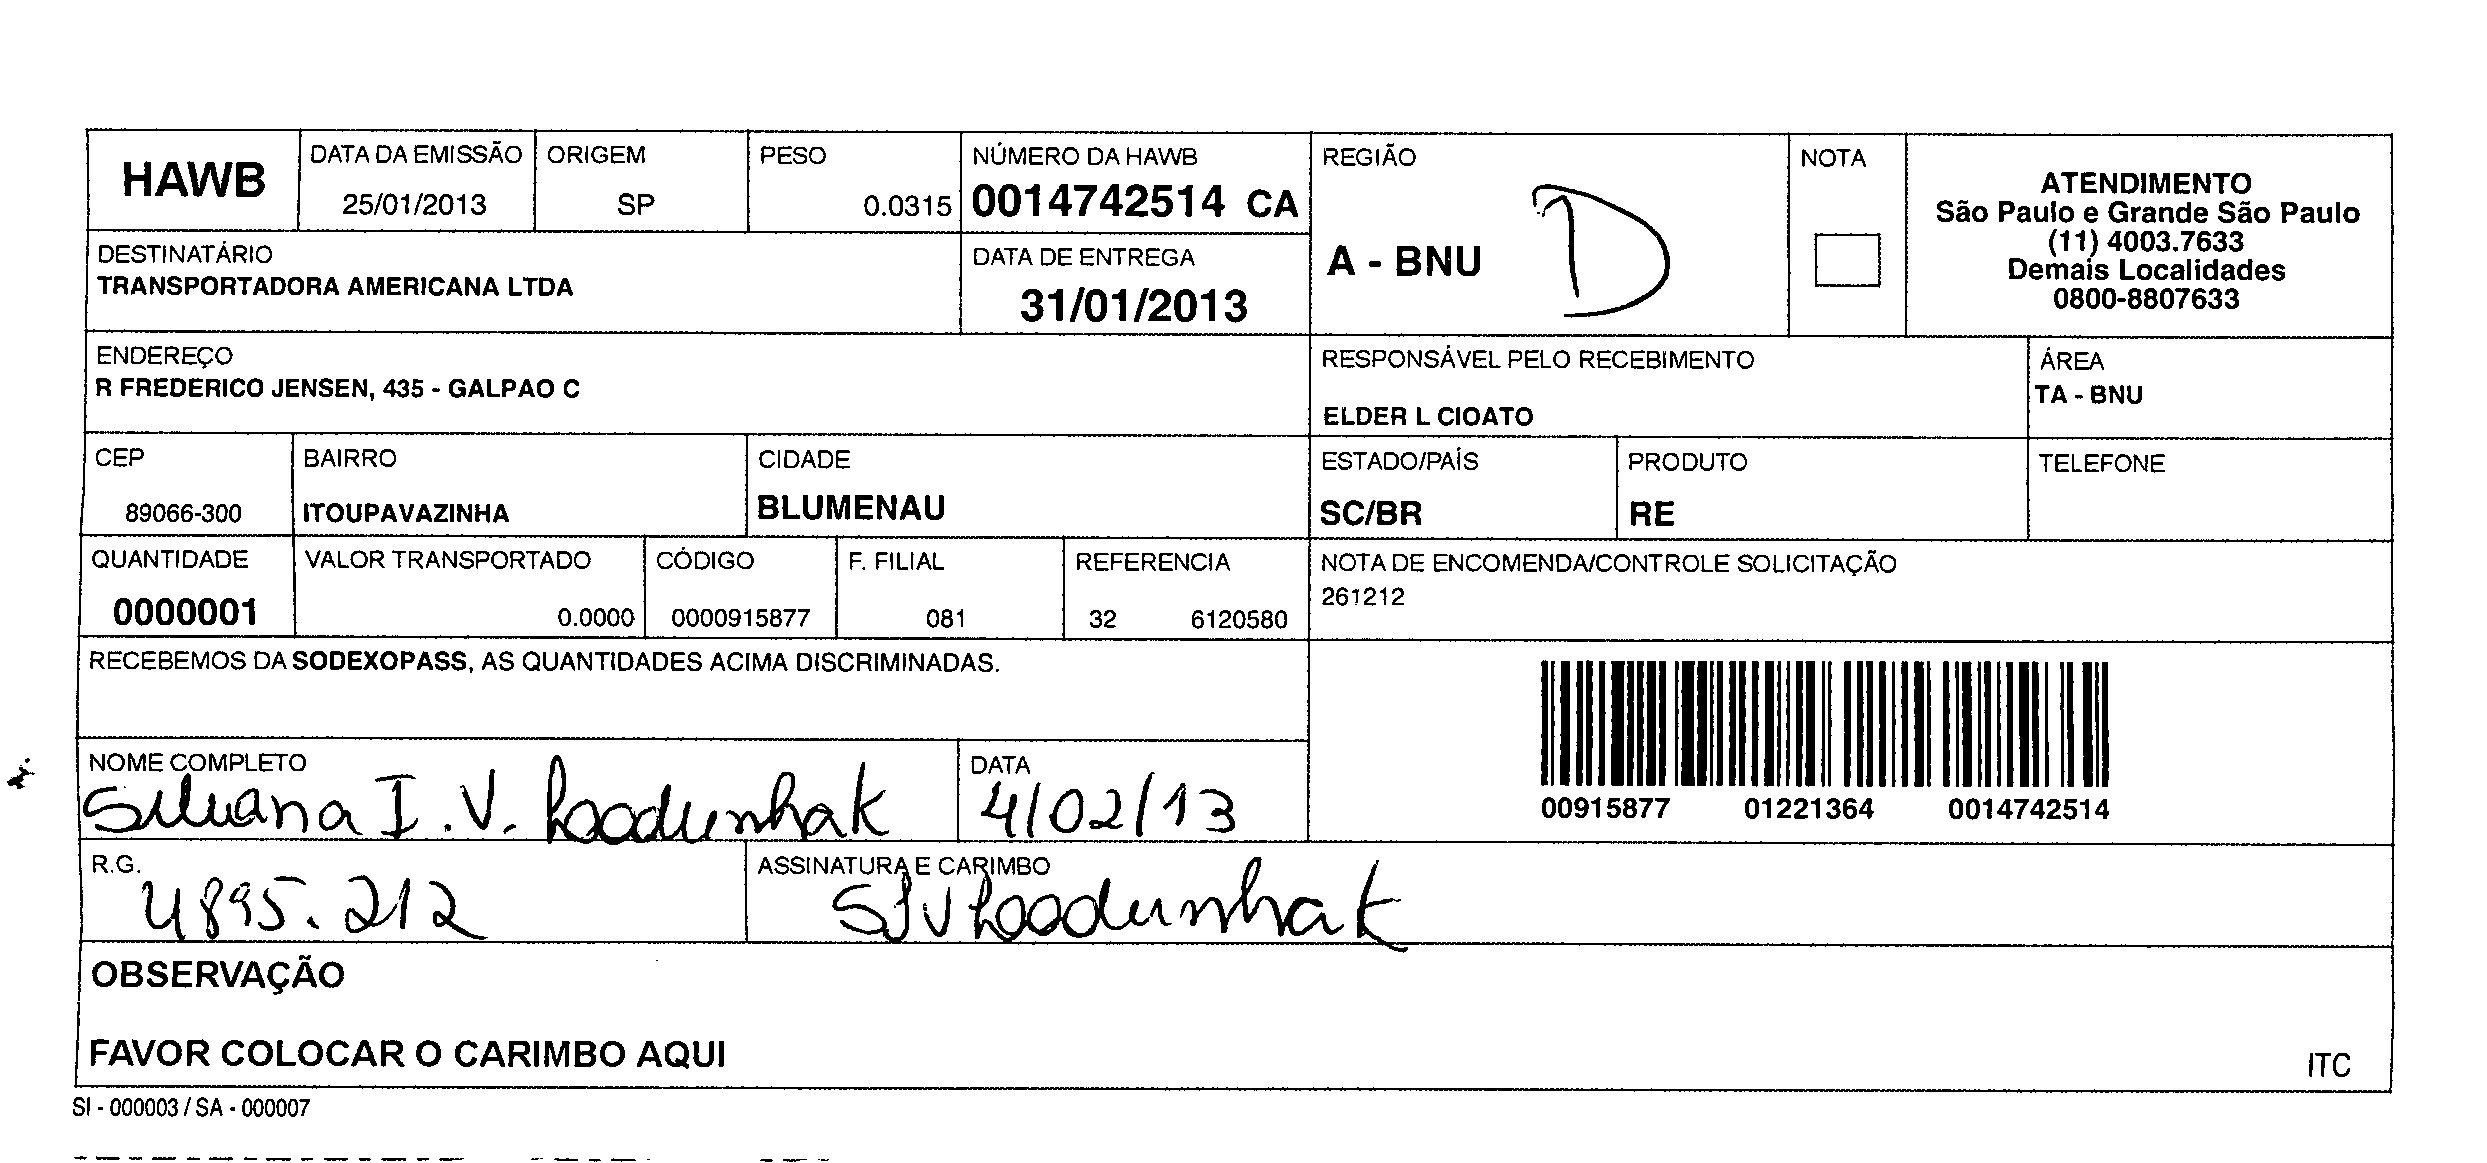 HAWB
DATA DA EMISSÃO
25/01/2013
ORIGEM
SP
PESO
0.0315
NÚMERO DA HAWB
0014742514 CA
REGIÃO
A - BNU
D
NOTA
ATENDIMENTO
São Paulo e Grande São Paulo
(11) 4003.7633
Demais Localidades
0800-8807633
DESTINATÁRIO
TRANSPORTADORA AMERICANA LTDA
DATA DE ENTREGA
31/01/2013
ENDEREÇO
R FREDERICO JENSEN, 435 - GALPAO C
RESPONSÁVEL PELO RECEBIMENTO
ELDER L CIOATO
ÁREA
TA - BNU
CEP
89066-300
BAIRRO
ITOUPAVAZINHA
CIDADE
BLUMENAU
ESTADO/PAÍS
SC/BR
PRODUTO
RE
TELEFONE
QUANTIDADE
0000001
VALOR TRANSPORTADO
0.0000
CÓDIGO
0000915877
F. FILIAL
081
REFERENCIA
32 6120580
NOTA DE ENCOMENDA/CONTROLE SOLICITAÇÃO
261212
RECEBEMOS DA SODEXOPASS, AS QUANTIDADES ACIMA DISCRIMINADAS.
00915877 01221364 0014742514
NOME COMPLETO
Silvana I. V.
DATA
4/02/13
R.G.
4895.212
ASSINATURA E CARIMBO
OBSERVAÇÃO
FAVOR COLOCAR O CARIMBO AQUI
ITC
SI - 000003 / SA - 000007